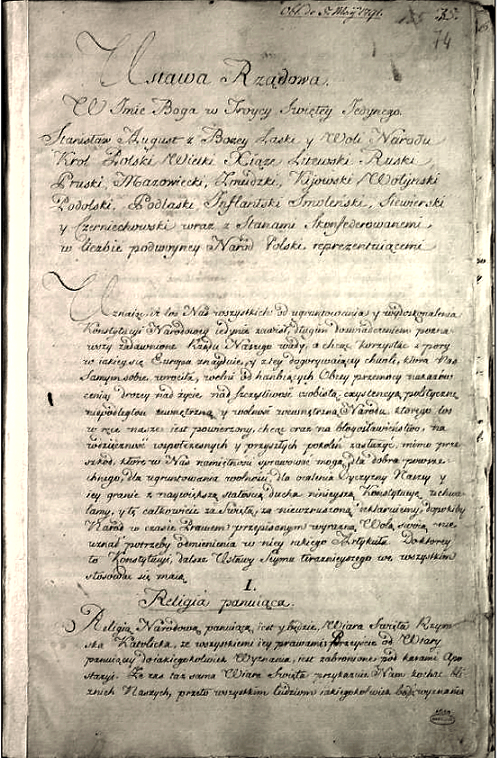 Obl. de 5 Maÿ 1791.
35.
74
Ustawa Rządowa.
W Imie Boga w Troycy Swiętey Jedynego.
Stanisław August z Bozey Łaski y Woli Narodu
Krol Polski Wielki Xiąze Litewski Ruski
Pruski, Mazowiecki, Zmudzki, Kijowski Wołynski
Podolski, Podlaski Inflantski Smolenski, Siewierski
y Czerniechowski wraz z Stanami Skonfederowanemi
w liczbie podwoyney Naród Polski reprezentuiącemi
Uznaiąc, iz los Nas wszystkich od ugruntowania y wydoskonalenia
Konstytucyi Narodowey iedynie zawisł, długim doswiadczeniem pozna-
wszy zadawnione Rządu Naszego wady, a chcąc korzystac z pory
w iakiey się Europa znayduie, y z tey dogorywaiącey chwili, ktora Nas
Samym sobie wrociła, wolni od hanbiących Obcey przemocy nakazów
ceniąc drozey nad zycie nad szczęsliwosc osobistą, exystencyą polityczną
niepodległosc zewnętrzną y wolnosc wewnętrzną Narodu, ktorego los
w ręce nasze iest powierzony, chcąc oraz na błogosławieństwo, na
wdzięcznosc wspołczesnych y przyszłych pokoleń zasłuzyc, mimo prze-
szkod, ktore w Nas namiętnosci sprawowac mogą, dla dobra powsze-
chnego, dla ugruntowania wolnosci, dla ocalenia Oyczyzny Naszey y
iey granic z naywiększą stałoscią ducha ninieyszą Konstytucyę uchwa-
lamy, y tę całkowicie za swiętą, za niewzruszoną deklaruiemy, dopokiby
Naród w czasie Prawem przepisanym wyrazną Wolą swoią nie
uznał potrzeby odmienienia w niey iakiego Artykułu. Do ktorey
to Konstytucyi, dalsze Ustawy Seymu teraznieyszego we wszystkim
stosowac się maią
I.
Religia panuiąca.
Religią Narodową panuiącą iest y będzie Wiara Swięta Rzym-
ska Katolicka, ze wszystkiemi iey prawami Przeyscie od Wiary
panuiącey do iakiegokolwiek Wyznania, iest zabronione pod karami Apo-
stazyi. Ze zas taz sama Wiara Swięta przykazuie Nam kochac bli-
znich Naszych, przeto wszystkim ludziom iakiegokolwiek bądz wyznania